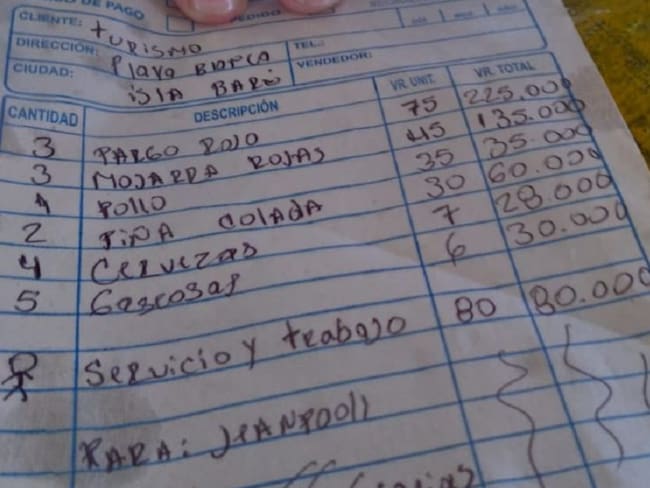 DE PAGO
PEDIDO
CLIENTE: turismo
DIRECCIÓN: Playa Blanca TEL.:
CIUDAD: isla Barú VENDEDOR:
CANTIDAD DESCRIPCIÓN VR. UNIT. VR. TOTAL
3 PARGO ROJO 75 225.000
3 MOJARRA ROJAS 45 135.000
1 POLLO 35 35.000
2 PIÑA COLADA 30 60.000
4 Cervezas 7 28.000
5 Gaseosas 6 30.000
Servicio y trabajo 80 80.000
PARA:
Gracias